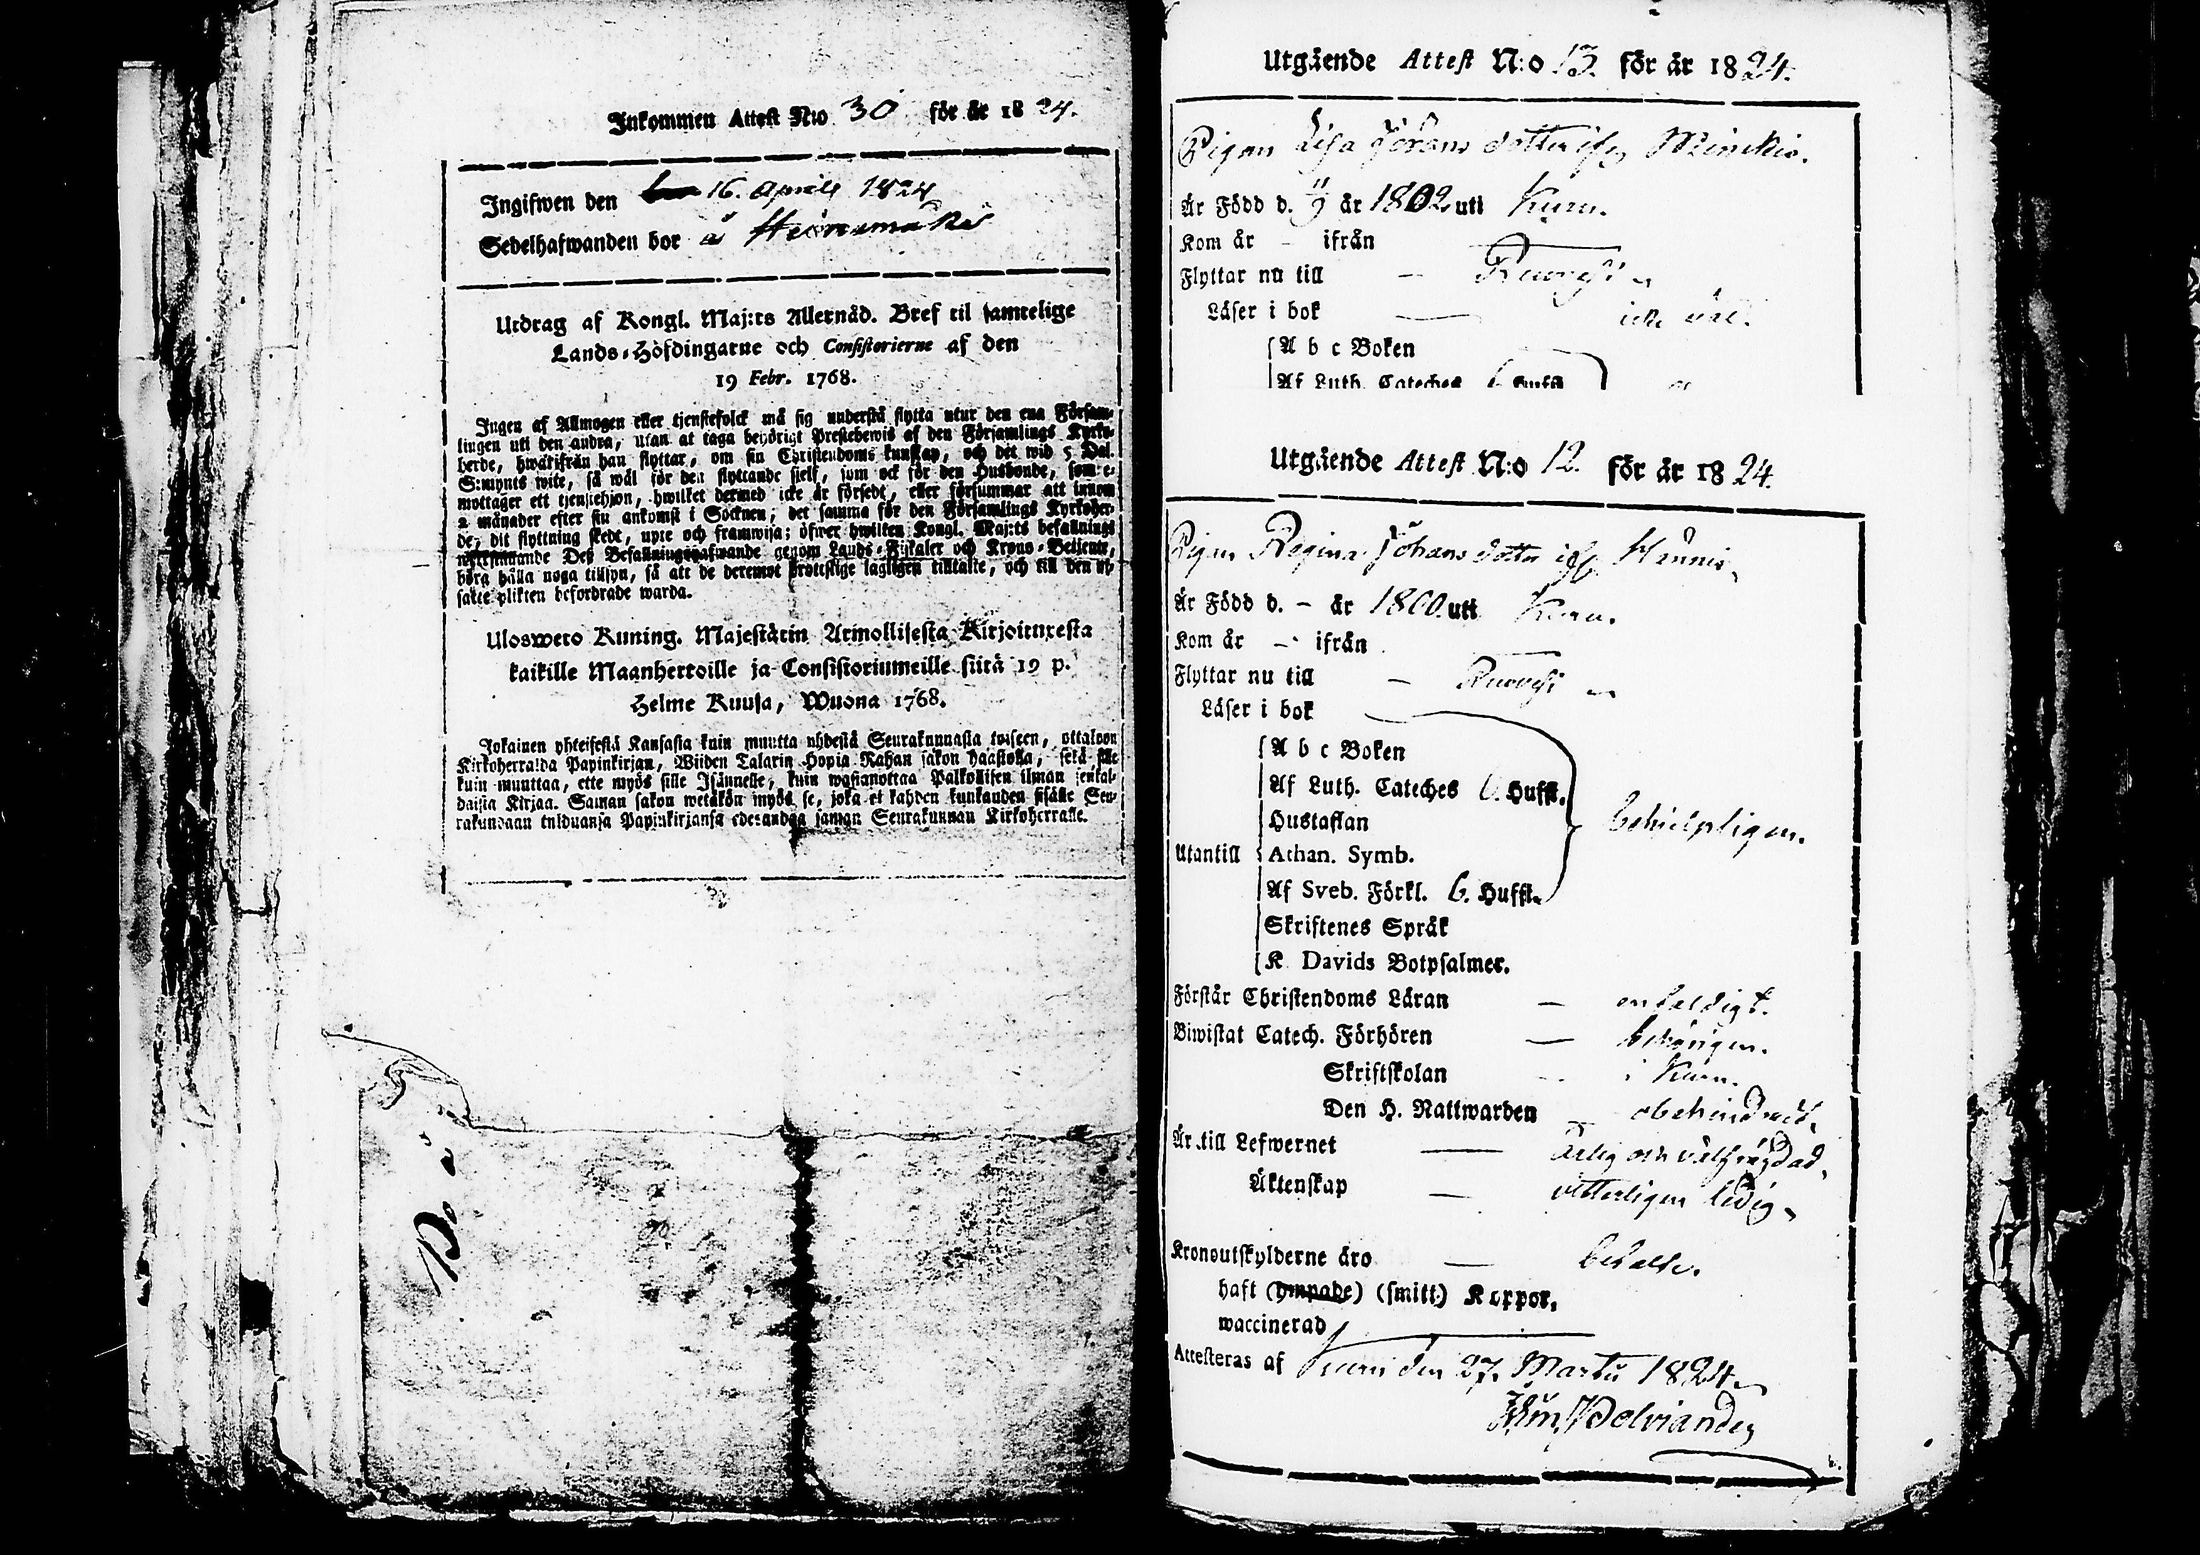 Inkommen Attest N:o 30 för år 1824.
Ingifwen den 16. Aprill 1824
Sedelhafwanden bor å Heinämäki
Utdrag af Kongl. Maj:ts Allernåd. Bref til samtelige
Lands-Höfdingarne och Consistorierne af den
19 Febr. 1768.
Ingen af Allmogen eller tjenstefolck må sig understå flytta utur den ena Försam-
lingen uti den andra, utan at taga behörigt Prestebewis af den Församlings Kyrko-
herde, hwarifrån han flyttar, om sin Christendoms kunskap, och det wid 5 Dal.
S:mynts wite, så wäl för den flyttande sielf, som ock för den Husbonde, som e-
mottager ett tjenstehjon, hwilket dermed icke är försedt, eller försummar att innom
2 månader efter sin ankomst i Socknen; det samma för den Församlings Kyrkoher-
de, dit flyttning skedt, upte och framwisa; öfwer hwilken Kongl. Maj:ts befallnings
Deß Befallningshafwande genom Lands-Fiskaler och Krono-Betjente,
böra hålla noga tillsyn, så att de deremot brottslige lagligen tilltalte, och till den ut-
satte plikten befordrade warda.
Uloswero Kuning. Majestätin Armollisesta Kirjoituxesta
kaikille Maanherroille ja Consistoriumeille siitä 19 p.
Helme Kuusa, Wuona 1768.
Jokainen yhteisestä Kansasta kuin muutta yhdestä Seurakunnasta toiseen, ottakoon
Kirkoherralda Papinkirjan, Wiiden Talarin Hopia Rahan sakon haastolla, sekä sille
kuin muuttaa, ette myös sille Isännelle, kuin wastanottaa Palkollisen ilman senkal-
daista Kirjaa. Saman sakon wetäkön myös se, joka ei kahden kunkauden sisälle Seu-
rakundaan tulduansa Papinkirjansa edesandaa saman Seurakunnan Kirkoherralle.
Utgående Attest N:o 13. för år 1824.
Pigan Lisa Jörans dotter ifrn
Är Född d. 11/9 år 1802 uti Kuru.
Kom år – ifrån
Flyttar nu till – Ruovesi
Läser i bok — icke väl.
A b c Boken
Af Luth. Cateches 6 Hufst
Utgående Attest N:o 12. för år 1824.
Pigan Regina Johans dotter ifr. Hannis
Är Född d. – år 1800. uti Kuru.
Kom år – ifrån
Flyttar nu till – Ruovesi
Läser i bok
A b c Boken
Af Luth. Cateches 6. Hufst.
Hustaflan
behielpligen.
Utantill Athan. Symb.
Af Sveb. Förkl. 6. Hufst.
Skriftenes Språk
K. Davids Botpsalmer.
Förstår Christendoms Läran — enfaldigt.
Biwistat Catech. Förhören — behörigen.
Skriftskolan i Kuru.
Den H. Nattwarden – obehindradt.
Är till Lefwernet — ärlig och välfrägdad,
Äktenskap — vitterligen ledig
Kronoutskylderne äro — betalte.
haft (ympade) (smitt) Koppor.
waccinerad
Attesteras af Kuru den 27. Martii 1824
Helviander